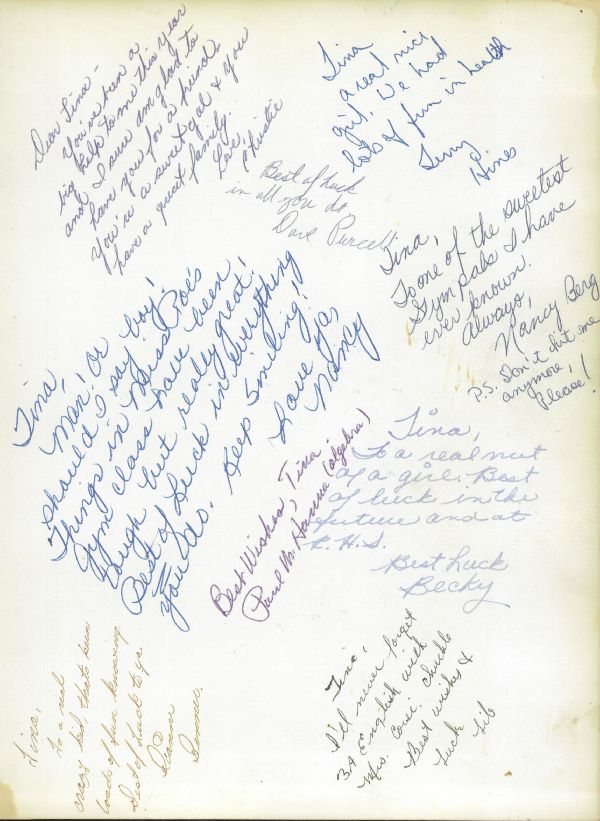 Dear Tina -
You've been a
big help to me this year
and I sure am glad to
have you for a friend.
You're a sweet gal & you
have a great family.
Love,
Christie
Tina
a real nice
girl. We had
lots of fun in health
Terry
Hines
Best of luck
in all you do
Dave Purcell
Tina,
To one of the sweetest
Gym pals I have
ever known.
Always,
Nancy Berg
P.S. Don't hit me
anymore,
Please!
Tina,
Man! or boy!
should I say
Things in Miss Poe's
Gym class have been
tough but really great!
Best of Luck in everything
You do. Keep Smiling!
Love Ya,
Nancy
Best Wishes, Tina
Paul M. Hanna (algebra)
Tina,
To a real nut
of a girl. Best
of luck in the
future and at
R.H.S.
Best Luck
Becky
Tina,
To a real
crazy kid, thats been
loads of fun knowing
Best of luck to ya
Tina,
I'll never forget
3A English with
Mrs. Chuckle
Best wishes &
Luck Lib